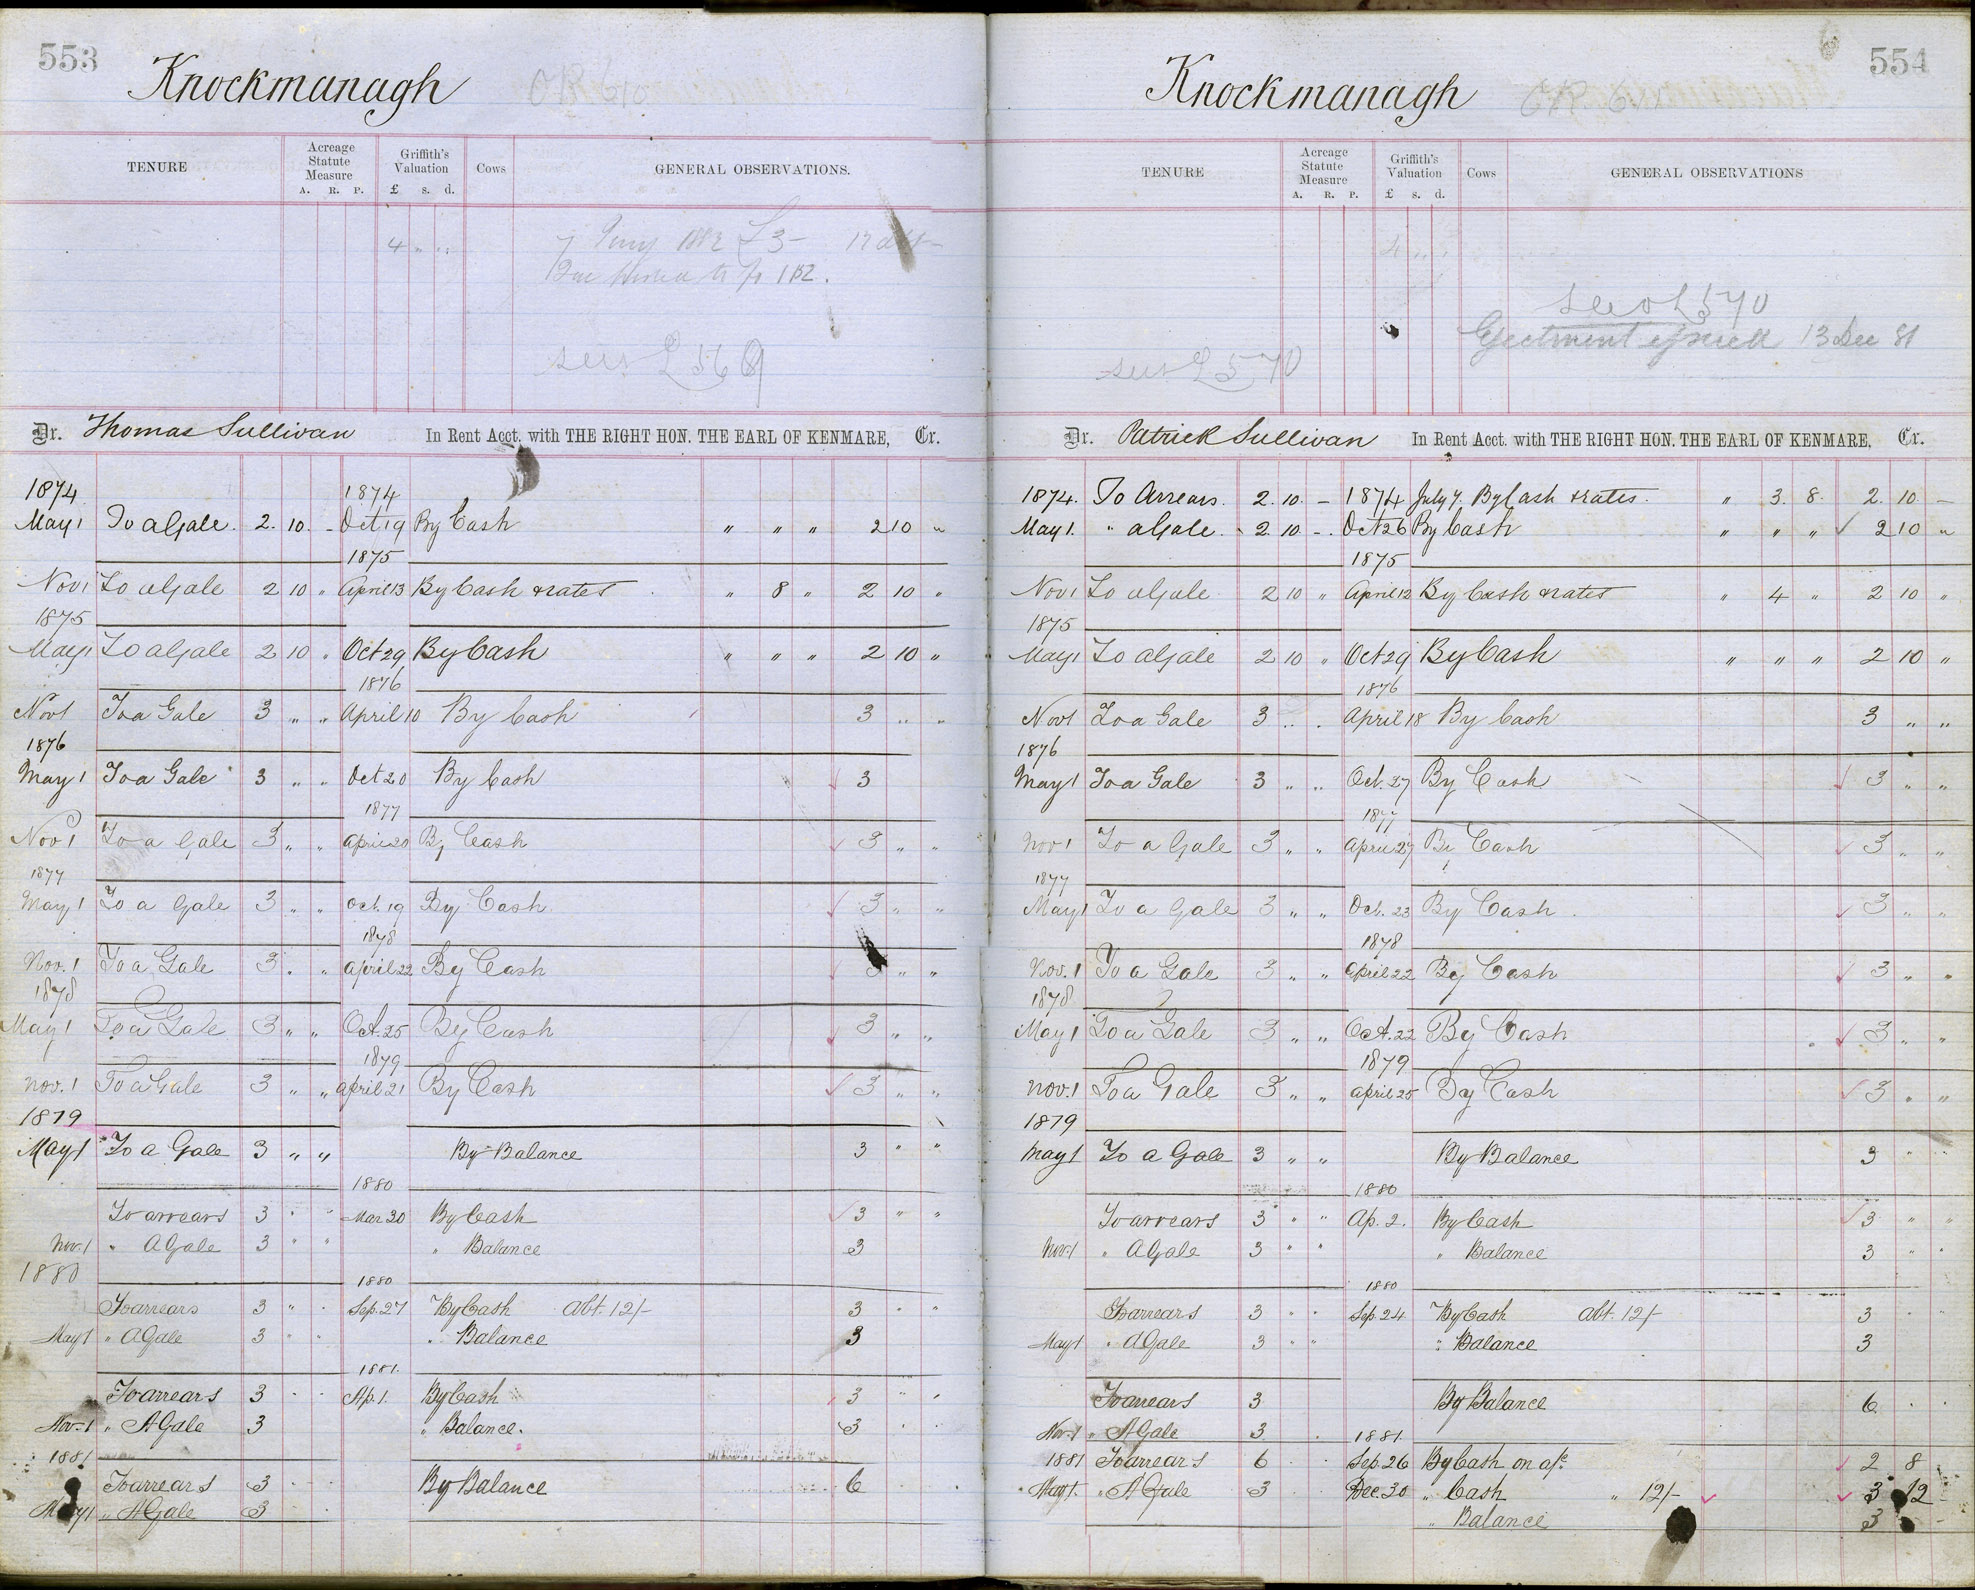 553
Knockmanagh
TENURE
Acreage Statute Measure
A. R. P.
Griffith's Valuation
£ s. d.
Cows
GENERAL OBSERVATIONS.
4 " "
Dr. Thomas Sullivan In Rent Acct. with THE RIGHT HON. THE EARL OF KENMARE, Cr.
1874 1874
May 1 To a Gale. 2. 10. - Oct 19 By Cash " " " 2 10 "
1875
Nov 1 To a Gale 2 10 " April 13 By Cash & rates " 8 " 2 10 "
1875
May 1 To a Gale 2 10 " Oct 29 By Cash " " " 2 10 "
1876
Nov 1 To a Gale 3 " " April 10 By Cash 3 " "
1876
May 1 To a Gale 3 " " Oct 20 By Cash 3
1877
Nov 1 To a Gale 3 " " April 20 By Cash 3 " "
1877
May 1 To a Gale 3 " " Oct. 19 By Cash 3 " "
1878
Nov. 1 To a Gale 3 " " April 22 By Cash 3 " "
1878
May 1 To a Gale 3 " " Oct. 25 By Cash 3 " "
1879
Nov. 1 To a Gale 3 " " April 21 By Cash 3 " "
1879
May 1 To a Gale 3 " " By Balance 3 " "
1880
To arrears 3 " " Mar 20 By Cash 3 " "
Nov. 1 " A Gale 3 " " " Balance 3
1880 1880
To arrears 3 " " Sep. 27 By Cash abt. 12/- 3 " "
May 1 " A Gale 3 " " " Balance 3
1881.
To arrears 3 " " Ap. 1. By Cash 3 " "
Nov. 1 " A Gale 3 " Balance. 3
1881
To arrears 3 By Balance 6
May 1 " A Gale 3
554
Knockmanagh
TENURE
Acreage Statute Measure
A. R. P.
Griffith's Valuation
£ s. d.
Cows
GENERAL OBSERVATIONS
4 " "
570
Ejectment 13 Dec 81
570
Dr. Patrick Sullivan In Rent Acct. with THE RIGHT HON. THE EARL OF KENMARE, Cr.
1874. To Arrears. 2. 10. - 1874 July 7. By Cash & rates. " 3. 8. 2. 10. -
May 1. " a Gale. 2. 10. - Oct 26 By Cash " " " 2 10 "
1875
Nov 1 To a Gale 2 10 " April 12 By Cash & rates " 4 " 2 10 "
1875
May 1 To a Gale 2 10 " Oct 29 By Cash " " " 2 10 "
1876
Nov 1 To a Gale 3 " " April 18 By Cash 3 " "
1876
May 1 To a Gale 3 " " Oct. 27 By Cash 3 " "
1877
Nov 1 To a Gale 3 " " April 27 By Cash 3 " "
1877
May 1 To a Gale 3 " " Oct. 23 By Cash 3 " "
1878
Nov. 1 To a Gale 3 " " April 22 By Cash 3 " "
1878
May 1 To a Gale 3 " " Oct. 22 By Cash 3 " "
1879
Nov. 1 To a Gale 3 " " April 25 By Cash 3 " "
1879
May 1 To a Gale 3 " " By Balance 3 "
1880
To arrears 3 " " Ap. 2. By Cash 3 " "
Nov. 1 " A Gale 3 " " " Balance 3 " "
1880
To arrears 3 " " Sep. 24 By Cash abt. 12/- 3
May 1 " A Gale 3 " " " Balance 3
To arrears 3 By Balance 6
Nov. 1 " A Gale 3 1881.
1881 To arrears 6 Sep 26 By Cash on a/c. 2 8
May 1. " A Gale 3 Dec. 30 " Cash " 12/- 3 12 -
" Balance 3